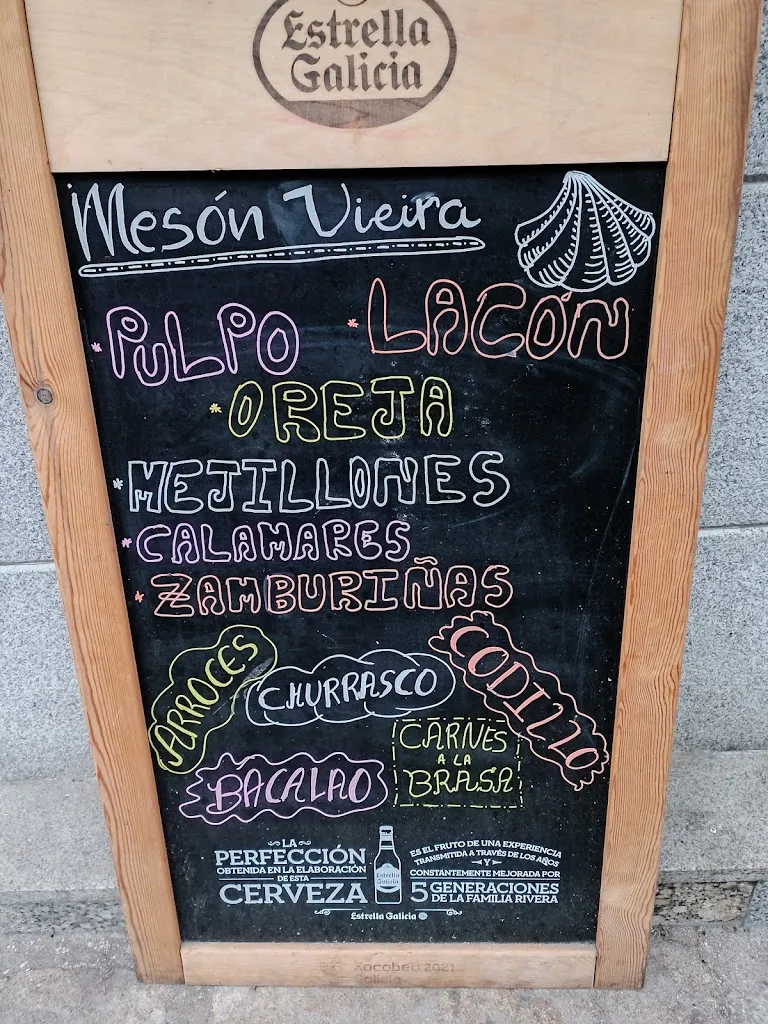 Estrella
Galicia
Mesón Vieira
* PULPO * LACÓN
* OREJA
* MEJILLONES
* CALAMARES
* ZAMBURIÑAS
ARROCES
CHURRASCO
CODILLO
CARNES
A LA
BRASA
BACALAO
LA
PERFECCIÓN
OBTENIDA EN LA ELABORACIÓN
DE ESTA
CERVEZA
Estrella
Galicia
ES EL FRUTO DE UNA EXPERIENCIA
TRANSMITIDA A TRAVÉS DE LOS AÑOS
Y
CONSTANTEMENTE MEJORADA POR
5 GENERACIONES
DE LA FAMILIA RIVERA
Estrella Galicia
Xacobeo 2021
Galicia